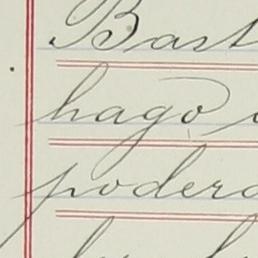 Bast
hago
podera